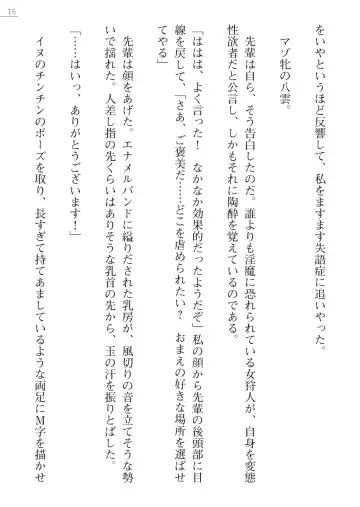 15
をいやというほど反響して、私をますます失語症に追いやった。
マゾ牝の八雲。
先輩は自ら、そう告白したのだ。誰よりも淫魔に恐れられている女狩人が、自身を変態
性欲者だと公言し、しかもそれに陶酔を覚えているのである。
「ははは、よく言った！　なかなか効果的だったようだぞ」私の顔から先輩の後頭部に目
線を戻して、「さあ、ご褒美だ……どこを虐められたい？　おまえの好きな場所を選ばせ
てやる」
先輩は顔をあげた。エナメルバンドに縊りだされた乳房が、風切りの音を立てそうな勢
いで揺れた。人差し指の先くらいはありそうな乳首の先から、玉の汗を振りとばした。
「……はいっ、ありがとうございます！」
イヌのチンチンのポーズを取り、長すぎて持てあましているような両足にＭ字を描かせ